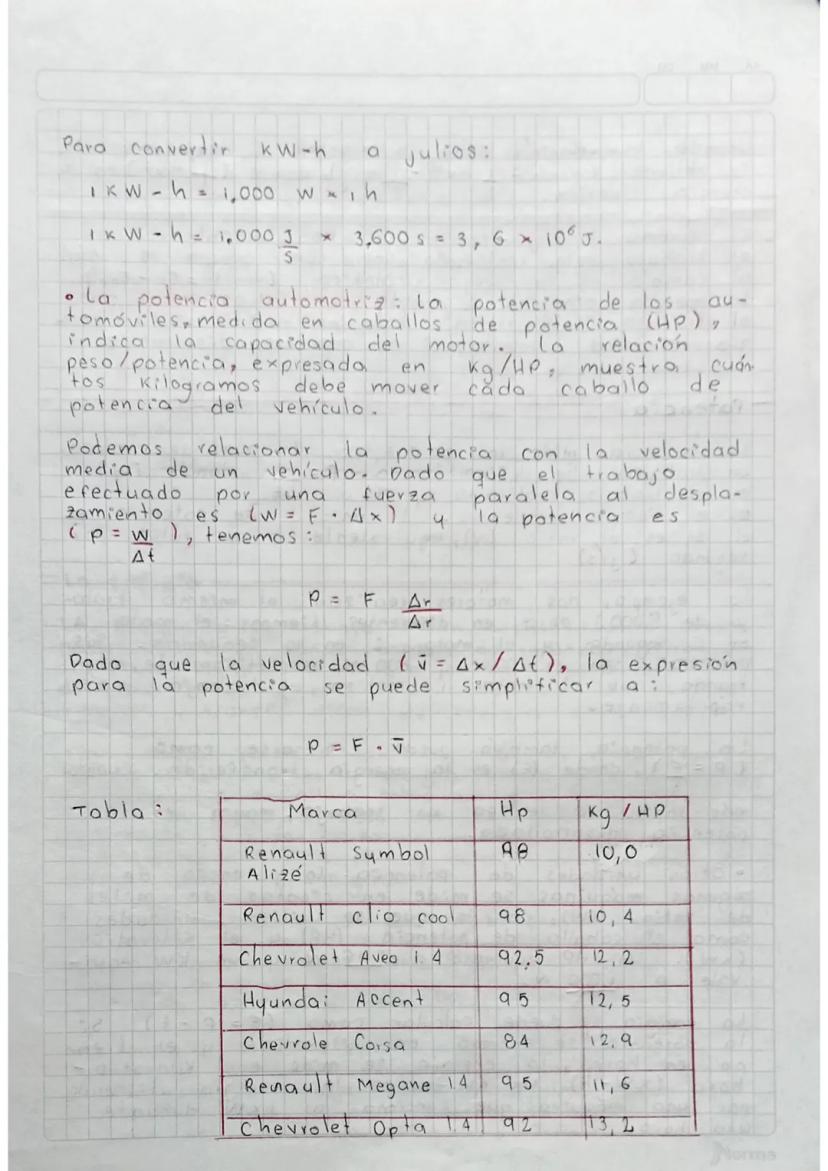 Para convertir KW-h a julios:
1 KW - h = 1,000 W × 1 h
1 KW - h = 1,000 J/S × 3,600 s = 3, 6 × 10⁶ J.
• La potencia automotriz: La potencia de los au-
tomóviles, medida en caballos de potencia (HP),
indica la capacidad del motor. La relación
peso/potencia, expresada en Kg/HP, muestra cuán
tos Kilogramos debe mover cada caballo de
potencia del vehículo.
Podemos relacionar la potencia con la velocidad
media de un vehículo. Dado que el trabajo
efectuado por una fuerza paralela al despla-
zamiento es (W = F · Δx) y la potencia es
(P = W/Δt), tenemos:
P = F Δr/Δr
Dado que la velocidad (v̄ = Δx / Δt), la expresión
para la potencia se puede simplificar a:
P = F · v̄
Tabla:
Marca Hp Kg / HP
Renault Symbol 98 10,0
Alizé
Renault clio cool 98 10, 4
Chevrolet Aveo 1.4 92,5 12, 2
Hyundai Accent 95 12, 5
Chevrole Corsa 84 12, 9
Renault Megane 1.4 95 11, 6
Chevrolet Opta 1.4 92 13, 2
Norma